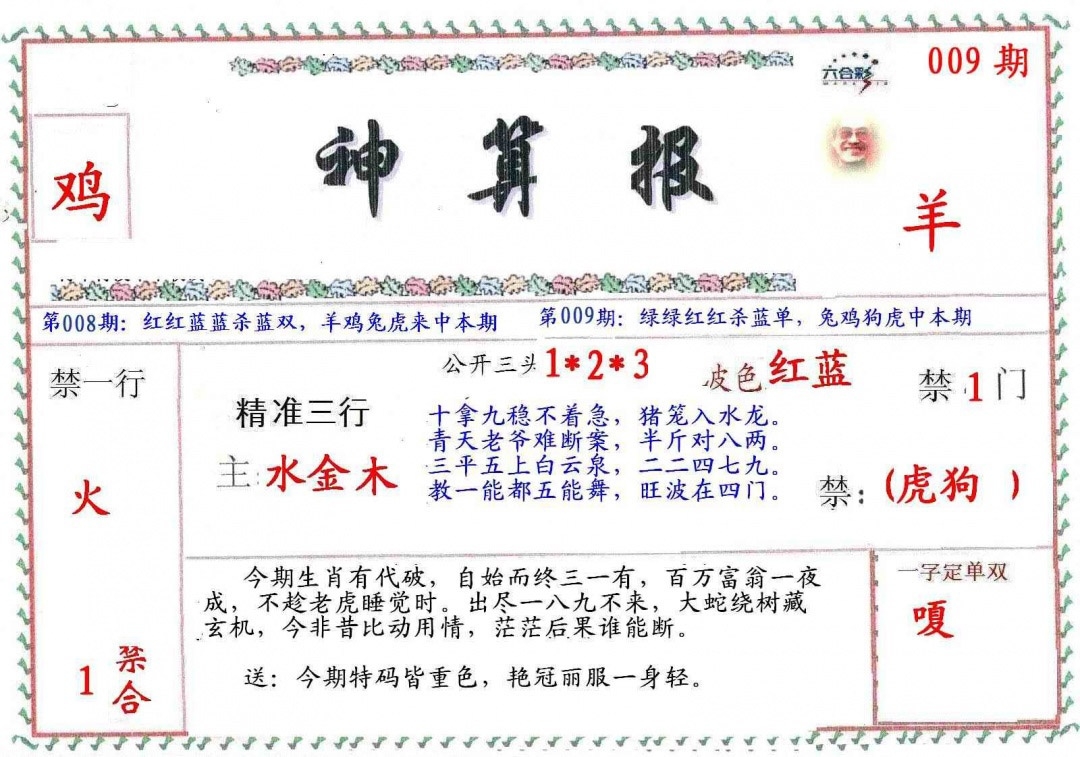 009 期
六合彩
鸡
神算报
羊
第008期：红红蓝蓝杀蓝双，羊鸡兔虎来中本期
第009期：绿绿红红杀蓝单，兔鸡狗虎中本期
禁一行
火
1 禁合
公开三头 1*2*3
波色 红蓝
禁 1 门
精准三行
主: 水金木
十拿九稳不着急，猪笼入水龙。
青天老爷难断案，半斤对八两。
三平五上白云泉，二二四七九。
教一能都五能舞，旺波在四门。
禁：(虎狗 )
今期生肖有代破，自始而终三一有，百万富翁一夜
成，不趁老虎睡觉时。出尽一八九不来，大蛇绕树藏
玄机，今非昔比动用情，茫茫后果谁能断。
送：今期特码皆重色，艳冠丽服一身轻。
一字定单双
嘎